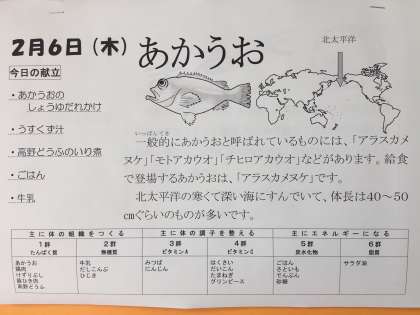 2月6日（木） あかうお
北太平洋
今日の献立
・あかうおの
しょうゆだれかけ
・うすくず汁
・高野どうふのいり煮
・ごはん
・牛乳
いっぱんてき
一般的にあかうおと呼ばれているものには、「アラスカメ
ヌケ」「モトアカウオ」「チヒロアカウオ」などがあります。給食
で登場するあかうおは、「アラスカメヌケ」です。
北太平洋の寒くて深い海にすんでいて、体長は40～50
㎝ぐらいのものが多いです。
主に体の組織をつくる 主に体の調子を整える 主にエネルギーになる
1群 2群 3群 4群 5群 6群
たんぱく質 無機質 ビタミンA ビタミンC 炭水化物 脂質
あかうお 牛乳 みつば はくさい ごはん サラダ油
鶏肉 だしこんぶ にんじん だいこん さといも
けずりぶし ひじき たまねぎ でんぷん
豚ひき肉 グリンピース 砂糖
高野どうふ